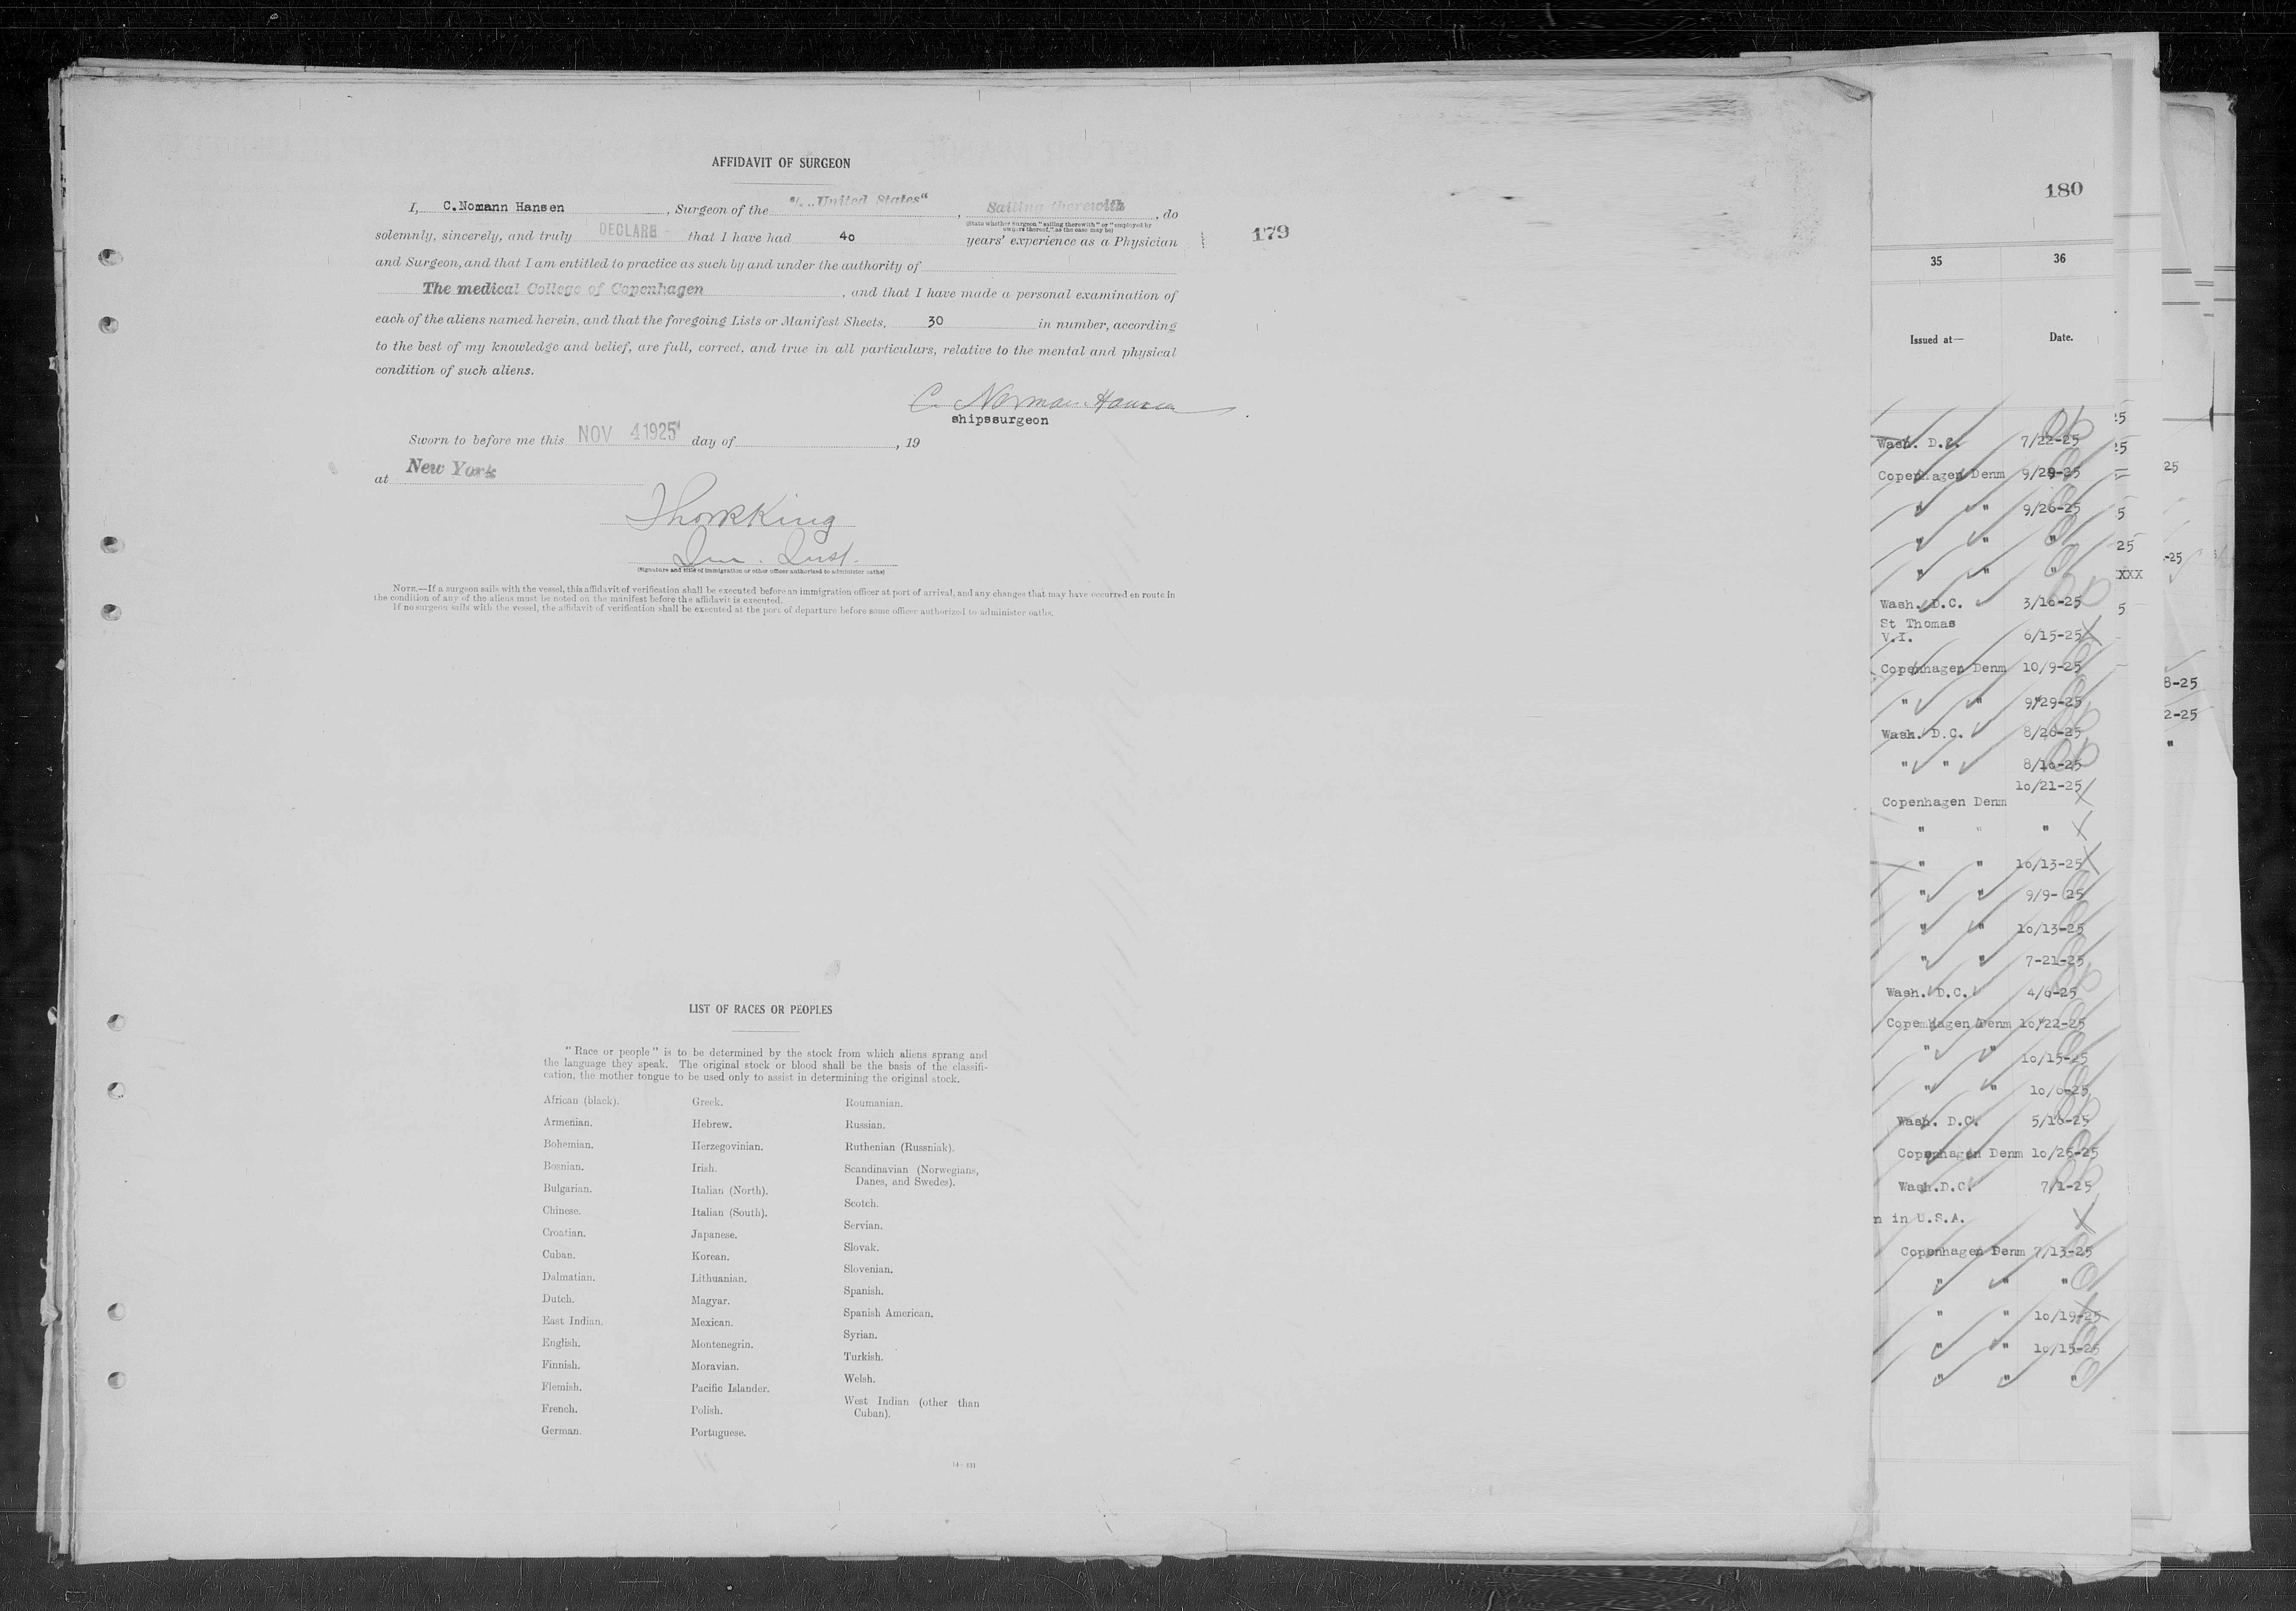 AFFIDAVIT OF SURGEON
I, C.Nomann Hansen , Surgeon of the "United States" , Sailing therewith , do
(State whether Surgeon "sailing therewith" or "employed by
owners thereof," as the case may be)
solemnly, sincerely, and truly DECLARE that I have had 40 years' experience as a Physician
179
and Surgeon, and that I am entitled to practice as such by and under the authority of
The medical College of Copenhagen , and that I have made a personal examination of
each of the aliens named herein, and that the foregoing Lists or Manifest Sheets, 30 in number, according
to the best of my knowledge and belief, are full, correct, and true in all particulars, relative to the mental and physical
condition of such aliens.
C. Norman Hansen
shipssurgeon
Sworn to before me this NOV 4 1925 day of , 19
at New York
Thos R King
Imm. Insp.
(Signature and title of immigration or other officer authorized to administer oaths)
NOTE.—If a surgeon sails with the vessel, this affidavit of verification shall be executed before an immigration officer at port of arrival, and any changes that may have occurred en route in
the condition of any of the aliens must be noted on the manifest before the affidavit is executed.
If no surgeon sails with the vessel, the affidavit of verification shall be executed at the port of departure before some officer authorized to administer oaths.
LIST OF RACES OR PEOPLES
"Race or people" is to be determined by the stock from which aliens sprang and
the language they speak. The original stock or blood shall be the basis of the classifi-
cation, the mother tongue to be used only to assist in determining the original stock.
African (black).
Armenian.
Bohemian.
Bosnian.
Bulgarian.
Chinese.
Croatian.
Cuban.
Dalmatian.
Dutch.
East Indian.
English.
Finnish.
Flemish.
French.
German.
Greek.
Hebrew.
Herzegovinian.
Irish.
Italian (North).
Italian (South).
Japanese.
Korean.
Lithuanian.
Magyar.
Mexican.
Montenegrin.
Moravian.
Pacific Islander.
Polish.
Portuguese.
Roumanian.
Russian.
Ruthenian (Russniak).
Scandinavian (Norwegians,
Danes, and Swedes).
Scotch.
Servian.
Slovak.
Slovenian.
Spanish.
Spanish American.
Syrian.
Turkish.
Welsh.
West Indian (other than
Cuban).
180
35 36
Issued at— Date.
Wash. D.C. 7/22-25
Copenhagen Denm 9/29-25
" " 9/26-25
" " "
" " "
Wash. D.C. 3/10-25
St Thomas
V.I. 6/15-25
Copenhagen Denm 10/9-25
" " 9/29-25
Wash. D.C. 8/26-25
" " 8/10-25
10/21-25
Copenhagen Denm
" " "
" " 10/13-25
" " 9/9- 25
" " 10/13-25
" " 7-21-25
Wash. D.C. 4/6-25
Copenhagen Denm 10/22-25
" " 10/15-25
" " 10/6-25
Wash. D.C. 5/16-25
Copenhagen Denm 10/26-25
Wash.D.C. 7/1-25
n in U.S.A.
Copenhagen Denm 7/13-25
" " "
" " 10/19-25
" " 10/15-25
" " "
25
25
5
25
XXX
5
25
-25
8-25
2-25
"